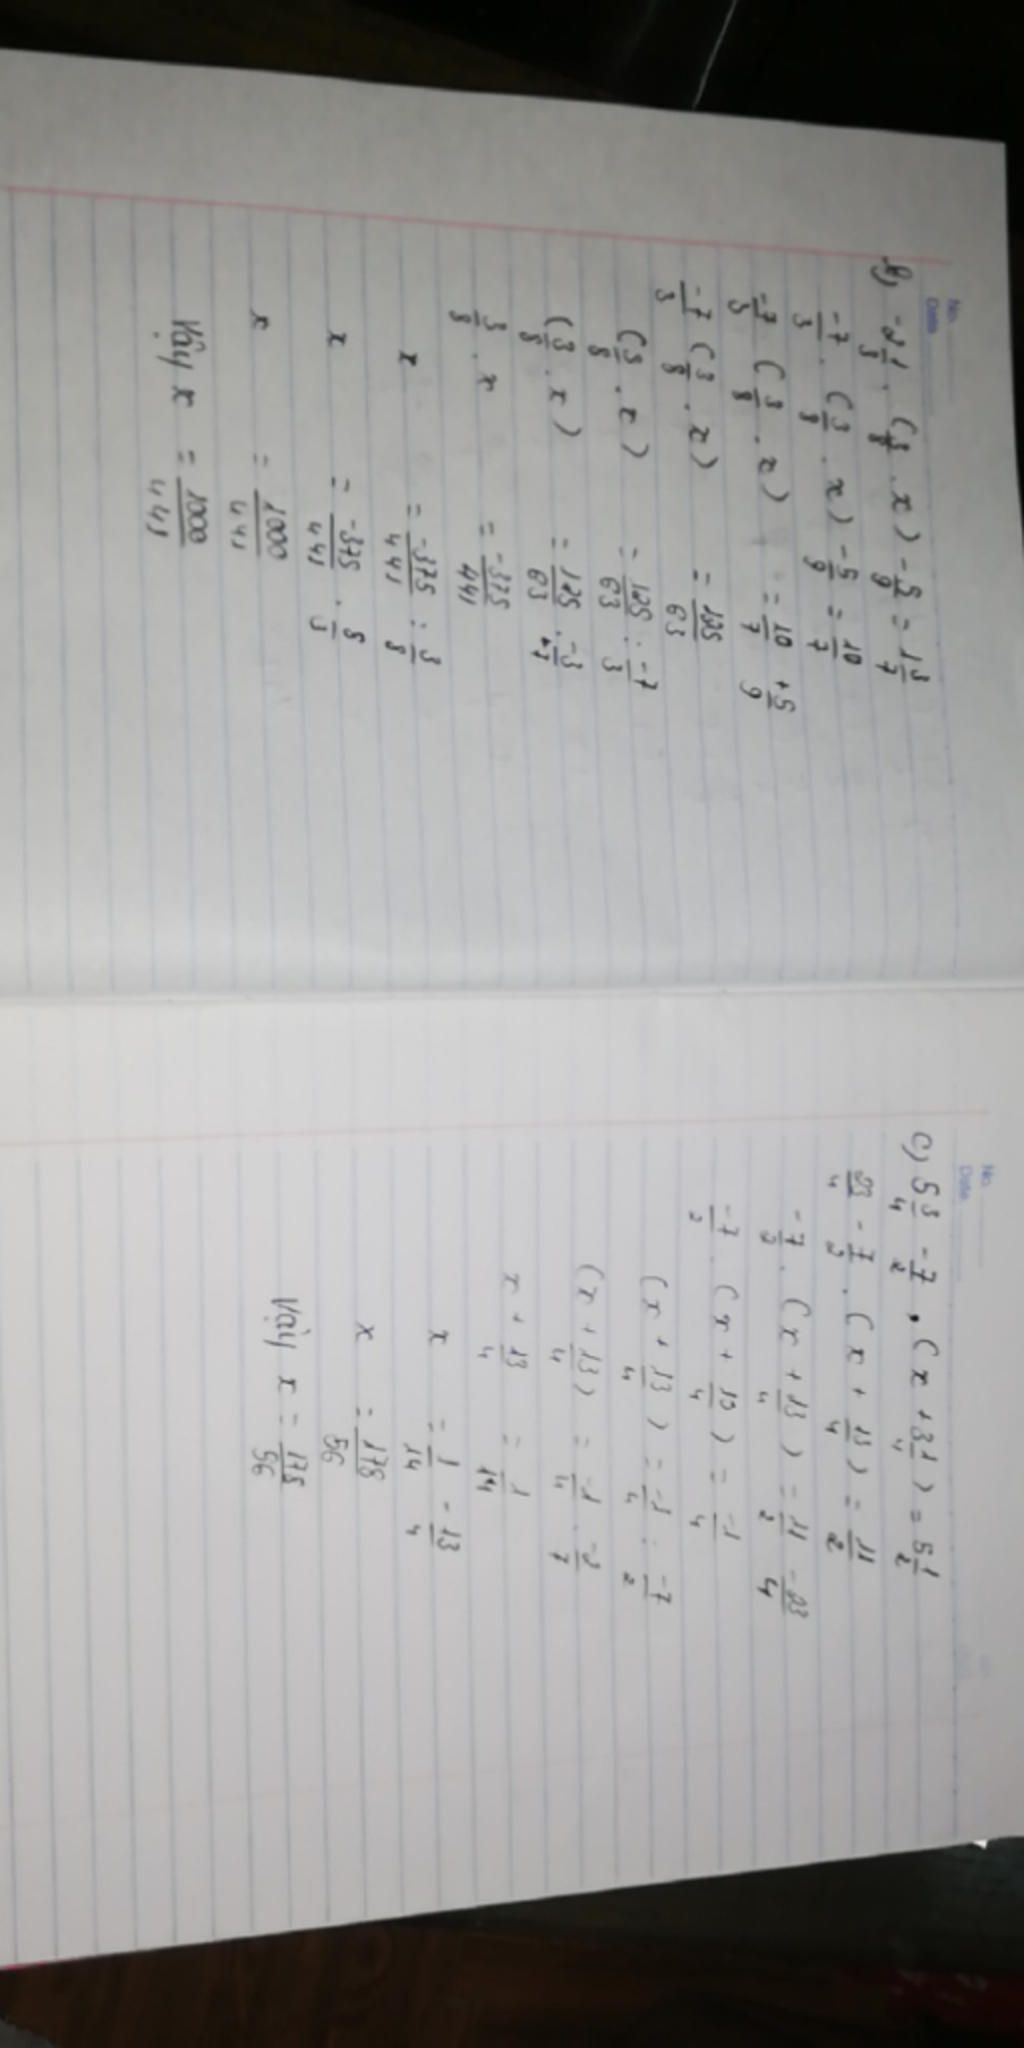 No.
Date
b) -2 1/3 . (3/8 . x) - 5/9 = 1 3/7
-7/3 . (3/8 . x) - 5/9 = 10/7
-7/3 (3/8 . x) = 10/7 + 5/9
-7/3 (3/8 . x) = 125/63
(3/8 . x) = 125/63 : -7/3
(3/8 . x) = 125/63 . -3/7
3/8 . x = -375/441
x = -375/441 : 3/8
x = -375/441 . 8/3
x = 1000/441
Vậy x = 1000/441
No.
Date
c) 5 3/4 - 7/2 . (x + 3 1/4) = 5 1/2
23/4 - 7/2 . (x + 13/4) = 11/2
-7/2 . (x + 13/4) = 11/2 - 23/4
-7/2 . (x + 13/4) = -1/4
(x + 13/4) = -1/4 : -7/2
(x + 13/4) = -1/4 . -2/7
x + 13/4 = 1/14
x = 1/14 - 13/4
x = 178/56
Vậy x = 178/56